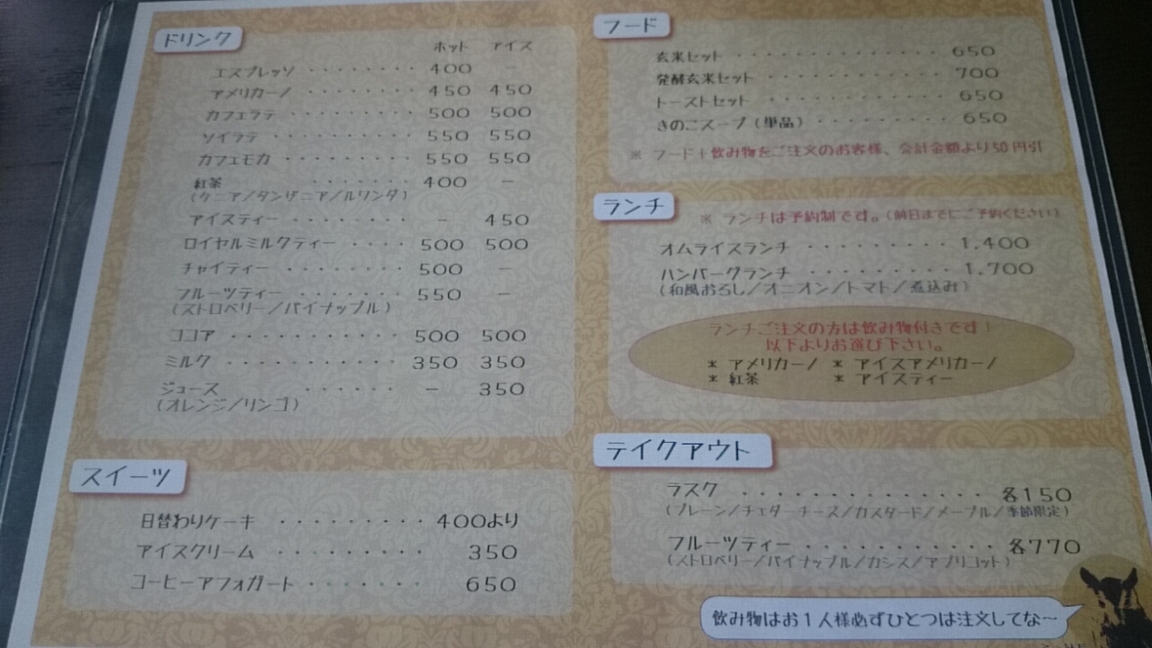 ドリンク
ホット アイス
エスプレッソ ········ 400 －
アメリカーノ ········ 450 450
カフェラテ ········· 500 500
ソイラテ ·········· 550 550
カフェモカ ········· 550 550
紅茶 ······· 400 －
(ケニア/タンザニア/ルワンダ)
アイスティー ········ － 450
ロイヤルミルクティー ···· 500 500
チャイティー ········ 500 －
フルーツティー ······· 550 －
(ストロベリー/パイナップル)
ココア ··········· 500 500
ミルク ··········· 350 350
ジュース ······ － 350
(オレンジ/リンゴ)
スイーツ
日替わりケーキ ········· 400より
アイスクリーム ········· 350
コーヒーアフォガート ······· 650
フード
玄米セット ·············· 650
発酵玄米セット ············ 700
トーストセット ············ 650
きのこスープ(単品) ········· 650
※ フード+飲み物をご注文のお客様、会計金額より50円引
ランチ
※ ランチは予約制です。(前日までにご予約ください)
オムライスランチ ········· 1,400
ハンバーグランチ ········· 1,700
(和風おろし/オニオン/トマト/煮込み)
ランチご注文の方は飲み物付きです！
以下よりお選び下さい。
* アメリカーノ * アイスアメリカーノ
* 紅茶 * アイスティー
テイクアウト
ラスク ·············· 各150
(プレーン/チェダーチーズ/カスタード/メープル/季節限定)
フルーツティー ··········· 各770
(ストロベリー/パイナップル/カシス/アプリコット)
飲み物はお1人様必ずひとつは注文してな〜